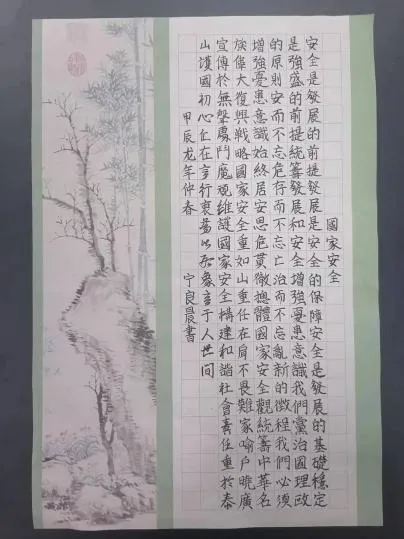 國家安全
安全是發展的前提發展是安全的保障安全是發展的基礎穩定
是強盛的前提統籌發展和安全增強憂患意識我們黨治國理政
的原則安而不忘危存而不忘亡治而不忘亂新的徵程我們必須
增強憂患意識始終居安思危貫徹總體國家安全觀統籌中華名
族偉大復興戰略國家安全重如山重任在肩不畏難家喻戶曉廣
宣傳於無聲處鬥魔視維護國家安全構建和諧社會責任重於泰
山護國初心在言行于人世間
甲辰龙年仲春 宁良晨書